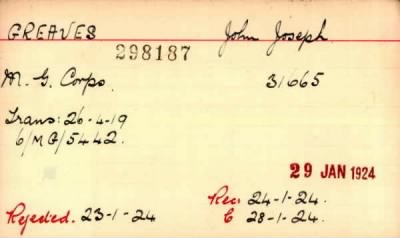 GREAVES John Joseph.
298187
M. G. Corps. 31665
Trans: 26-4-19
6/MG/5442.
29 JAN 1924
Rec: 24-1-24.
Rejected. 23-1-24 E 28-1-24.